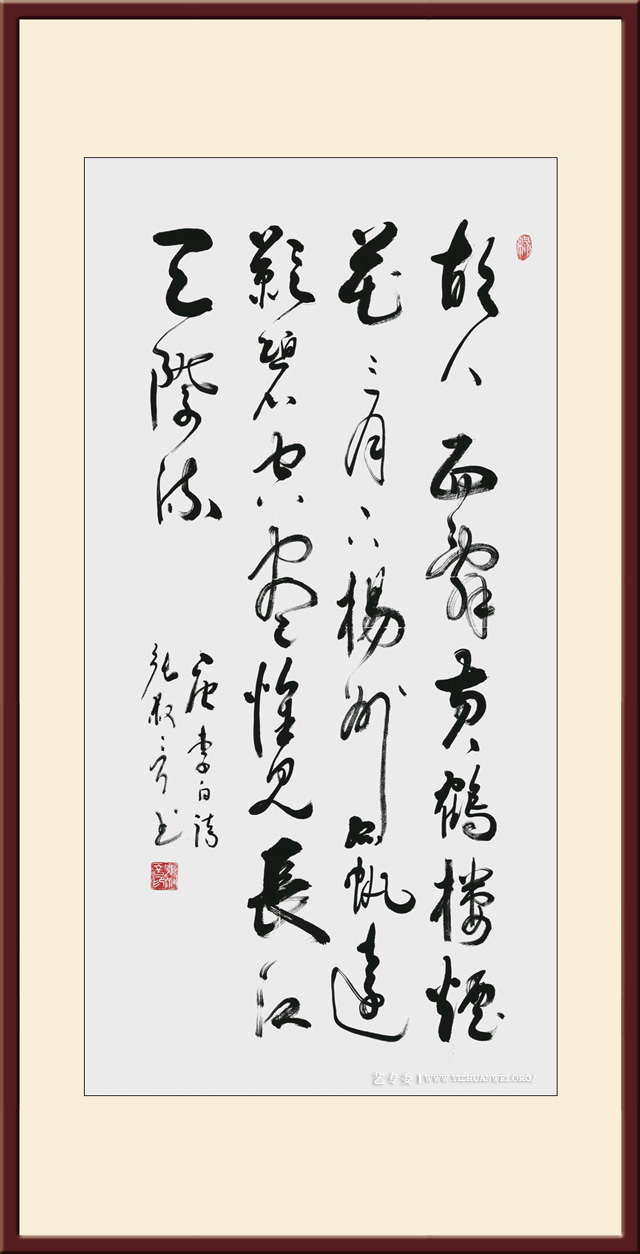 故人西辭黄鶴樓煙
花三月下楊州孤帆遠
影碧空盡惟見長江
天際流
唐李白詩
张 书
艺专委 | WWW.YIZHUANWEI.ORG